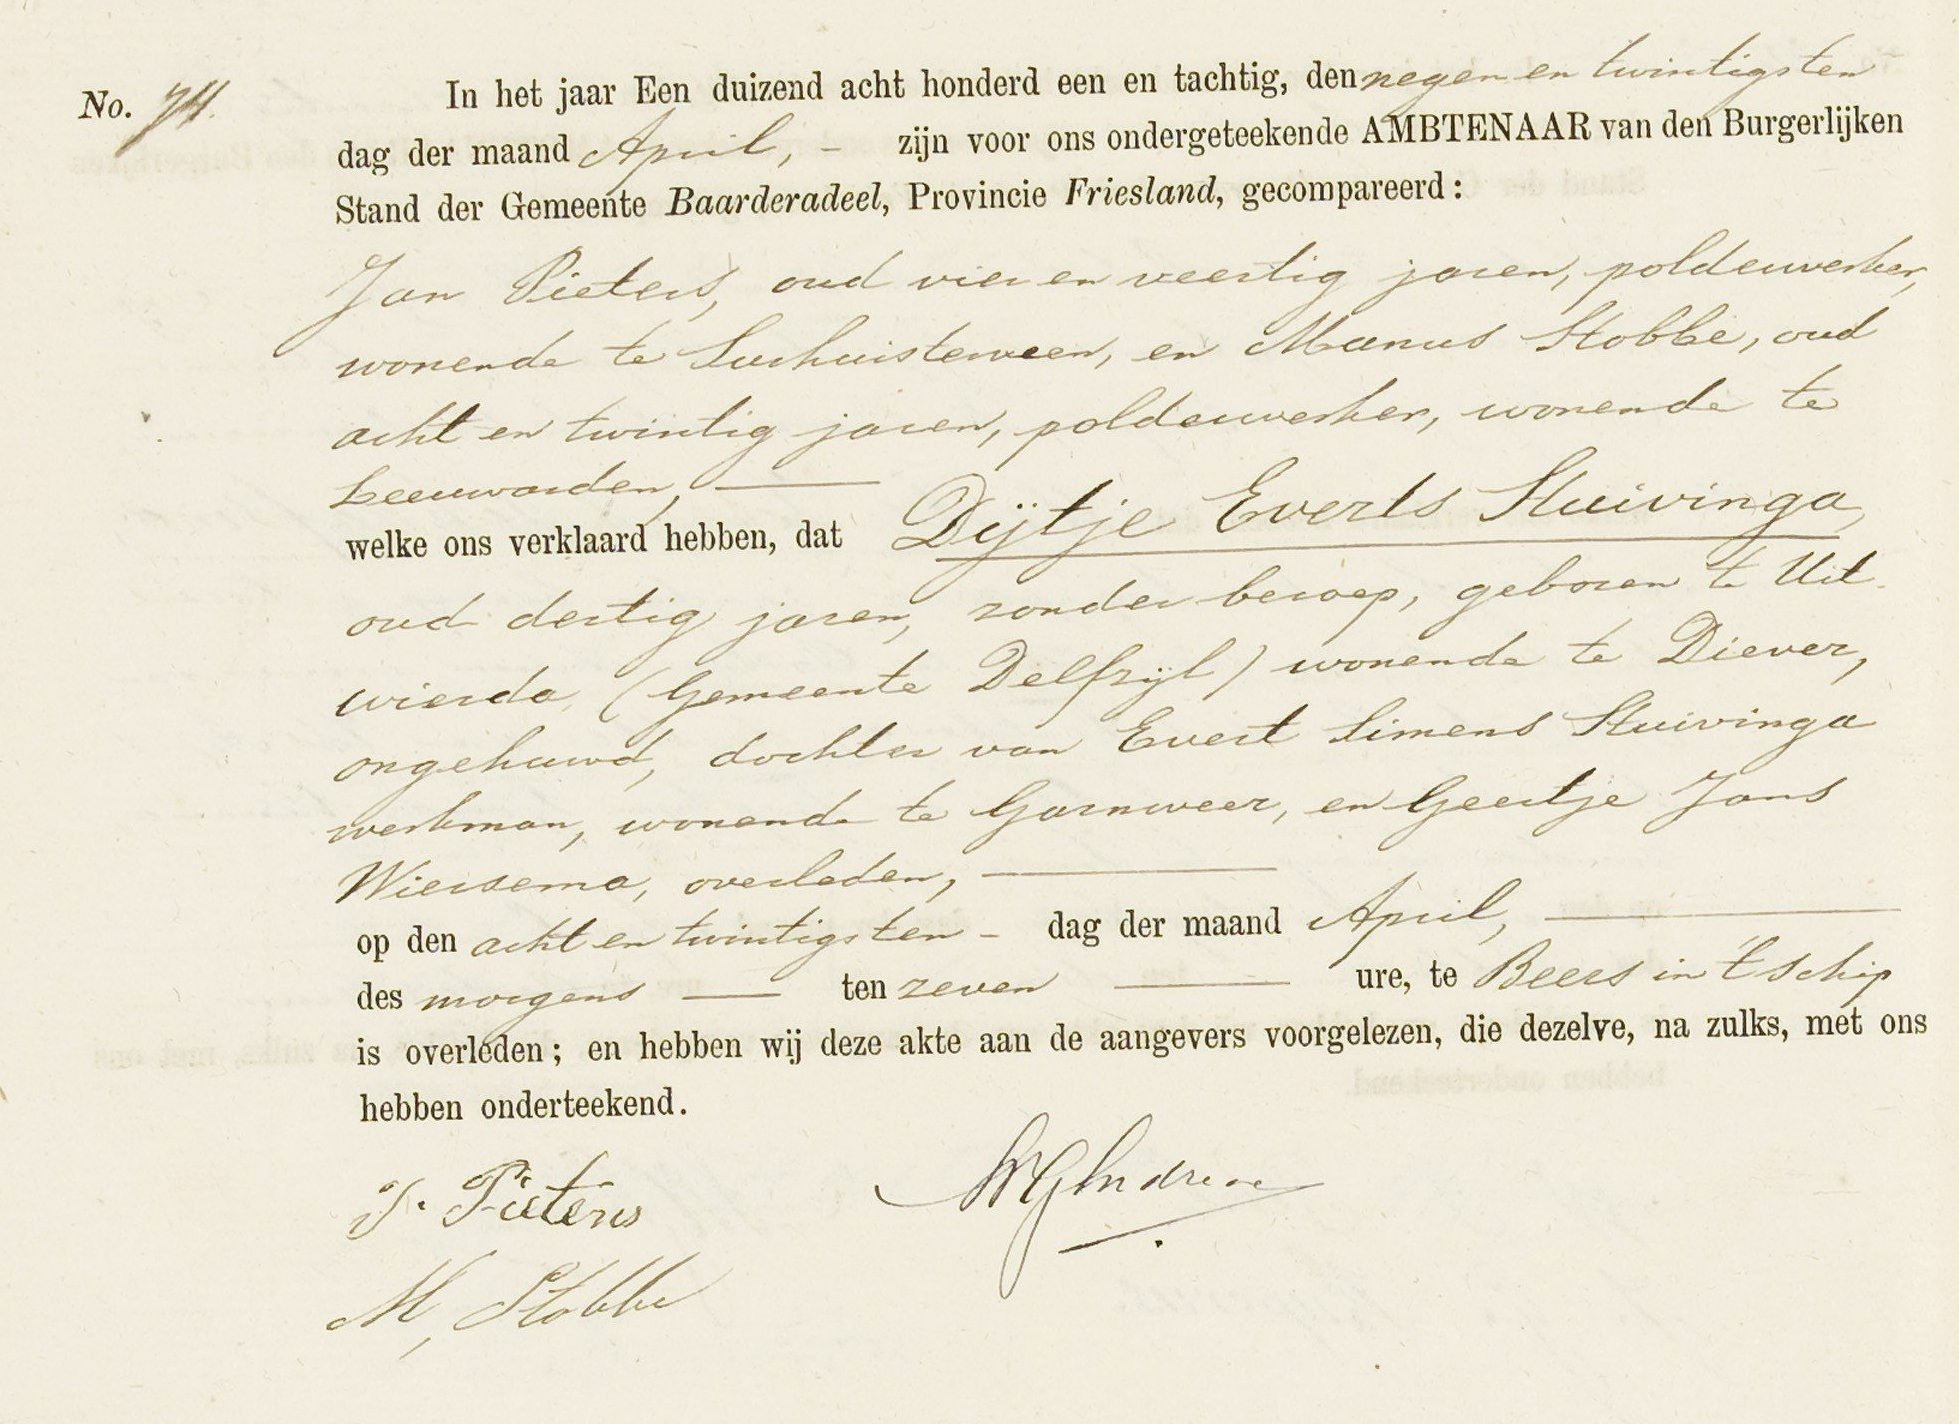 No. 74.
In het jaar Een duizend acht honderd een en tachtig, den negen en twintigsten
dag der maand April, - zijn voor ons ondergeteekende AMBTENAAR van den Burgerlijken
Stand der Gemeente Baarderadeel, Provincie Friesland, gecompareerd:
Jan Pieters, oud vier en veertig jaren, polderwerker,
wonende te Surhuisterveen, en Manus Stobbe, oud
acht en twintig jaren, polderwerker, wonende te
Leeuwarden, —
welke ons verklaard hebben, dat Dijtje Everts Stuivinga,
oud dertig jaren, zonder beroep, geboren te Uit-
wierda, (Gemeente Delfzijl) wonende te Diever,
ongehuwd, dochter van Evert Simens Stuivinga
werkman, wonende te Garnweer, en Geertje Jans
Wiersema, overleden, —
op den acht en twintigsten - dag der maand April, —
des morgens — ten zeven — ure, te Beers in 't schip
is overleden; en hebben wij deze akte aan de aangevers voorgelezen, die dezelve, na zulks, met ons
hebben onderteekend.
J. Pieters
M, Stobbe